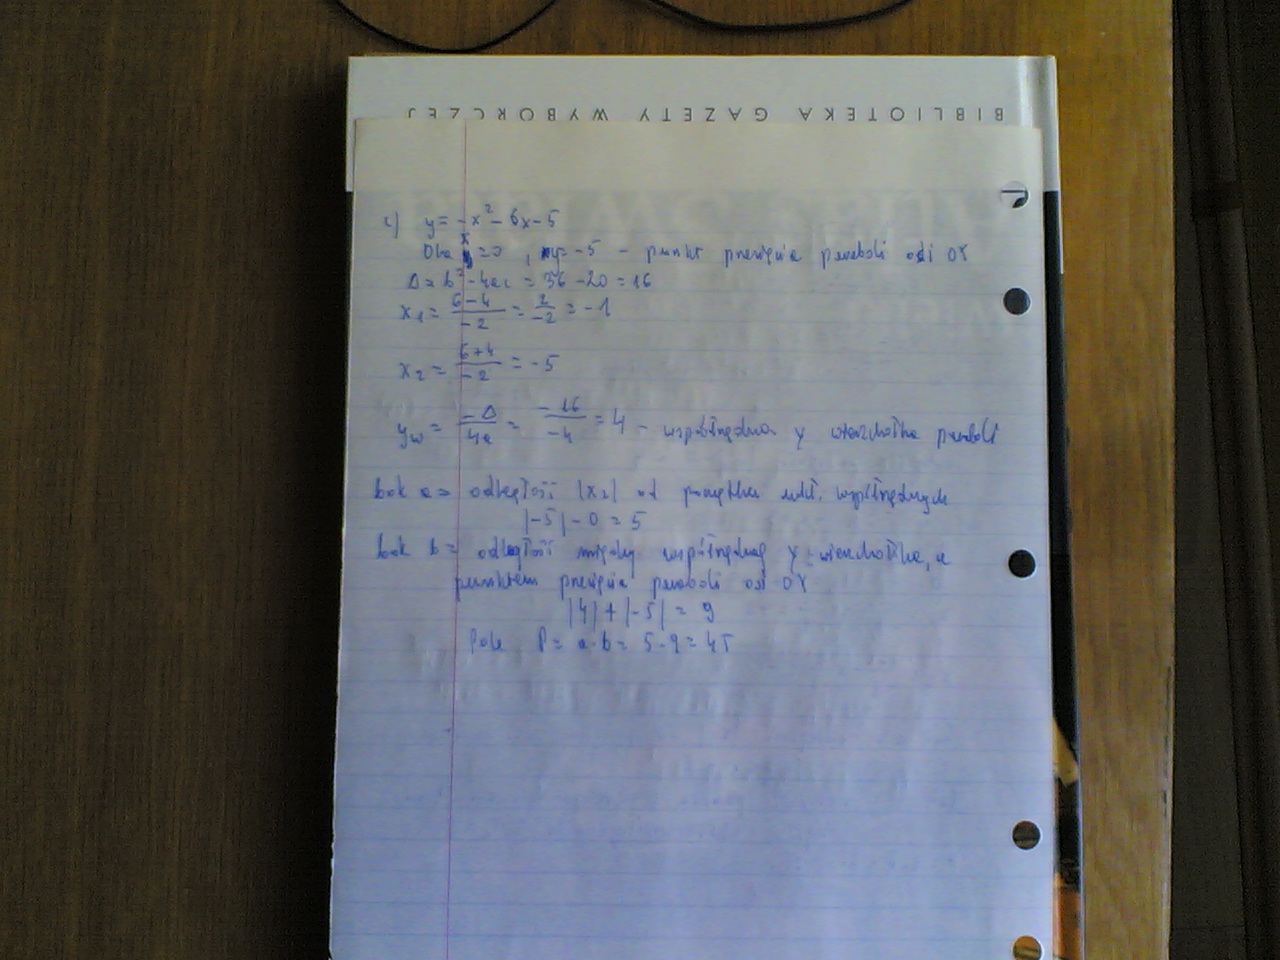 BIBLIOTEKA GAZETY WYBORCZEJ
c) y = -x² - 6x - 5
Dla x = 0, y = -5 - punkt przecięcia paraboli osi OY
Δ = b² - 4ac = 36 - 20 = 16
x₁ = \frac{6-4}{-2} = \frac{2}{-2} = -1
x₂ = \frac{6+4}{-2} = -5
yw = \frac{-Δ}{4a} = \frac{-16}{-4} = 4 - współrzędna y wierzchołka paraboli
bok a = odległość |x₂| od początku ukł. współrzędnych
|-5| - 0 = 5
bok b = odległość między współrzędną y wierzchołka, a
punktem przecięcia paraboli osi OY
|4| + |-5| = 9
Pole P = a·b = 5·9 = 45